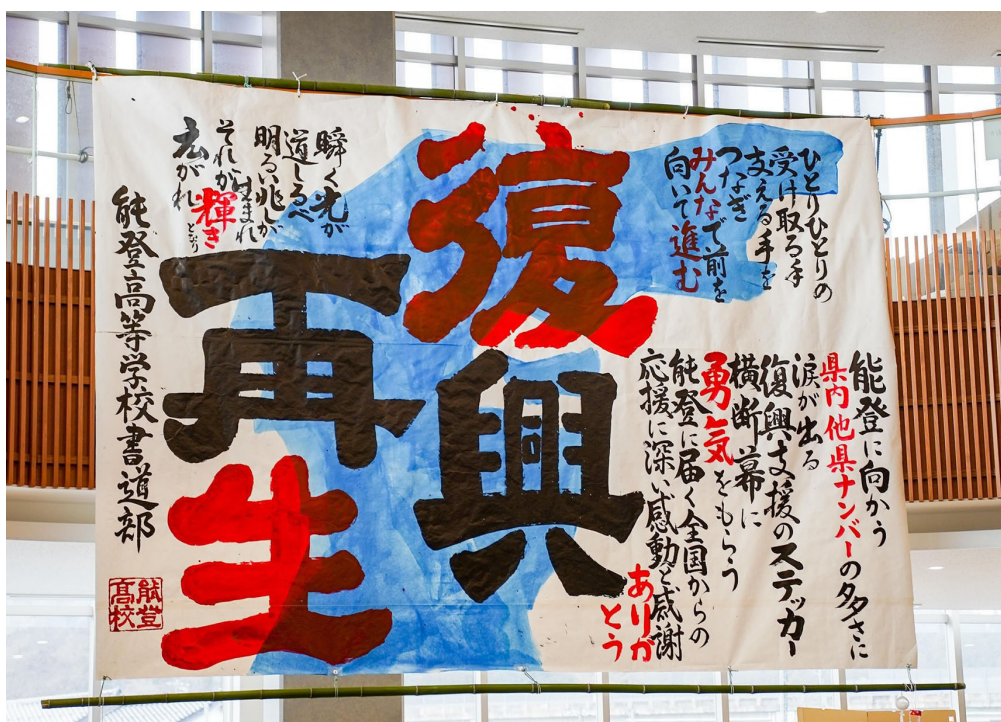 ひとりひとりの
受け取る手
支える手を
つなぎ
みんなで前を
向いて進む
能登に向かう
県内他県ナンバーの多さに
涙が出る
復興支援のステッカー
横断幕に
勇気をもらう
能登に届く全国からの
応援に深い感動と感謝
ありが
とう
復興
再生
瞬く光が
道しるべ
明るい兆しが
生まれ
それが輝きとなり
広がれ
能登高等学校書道部
能登
髙校